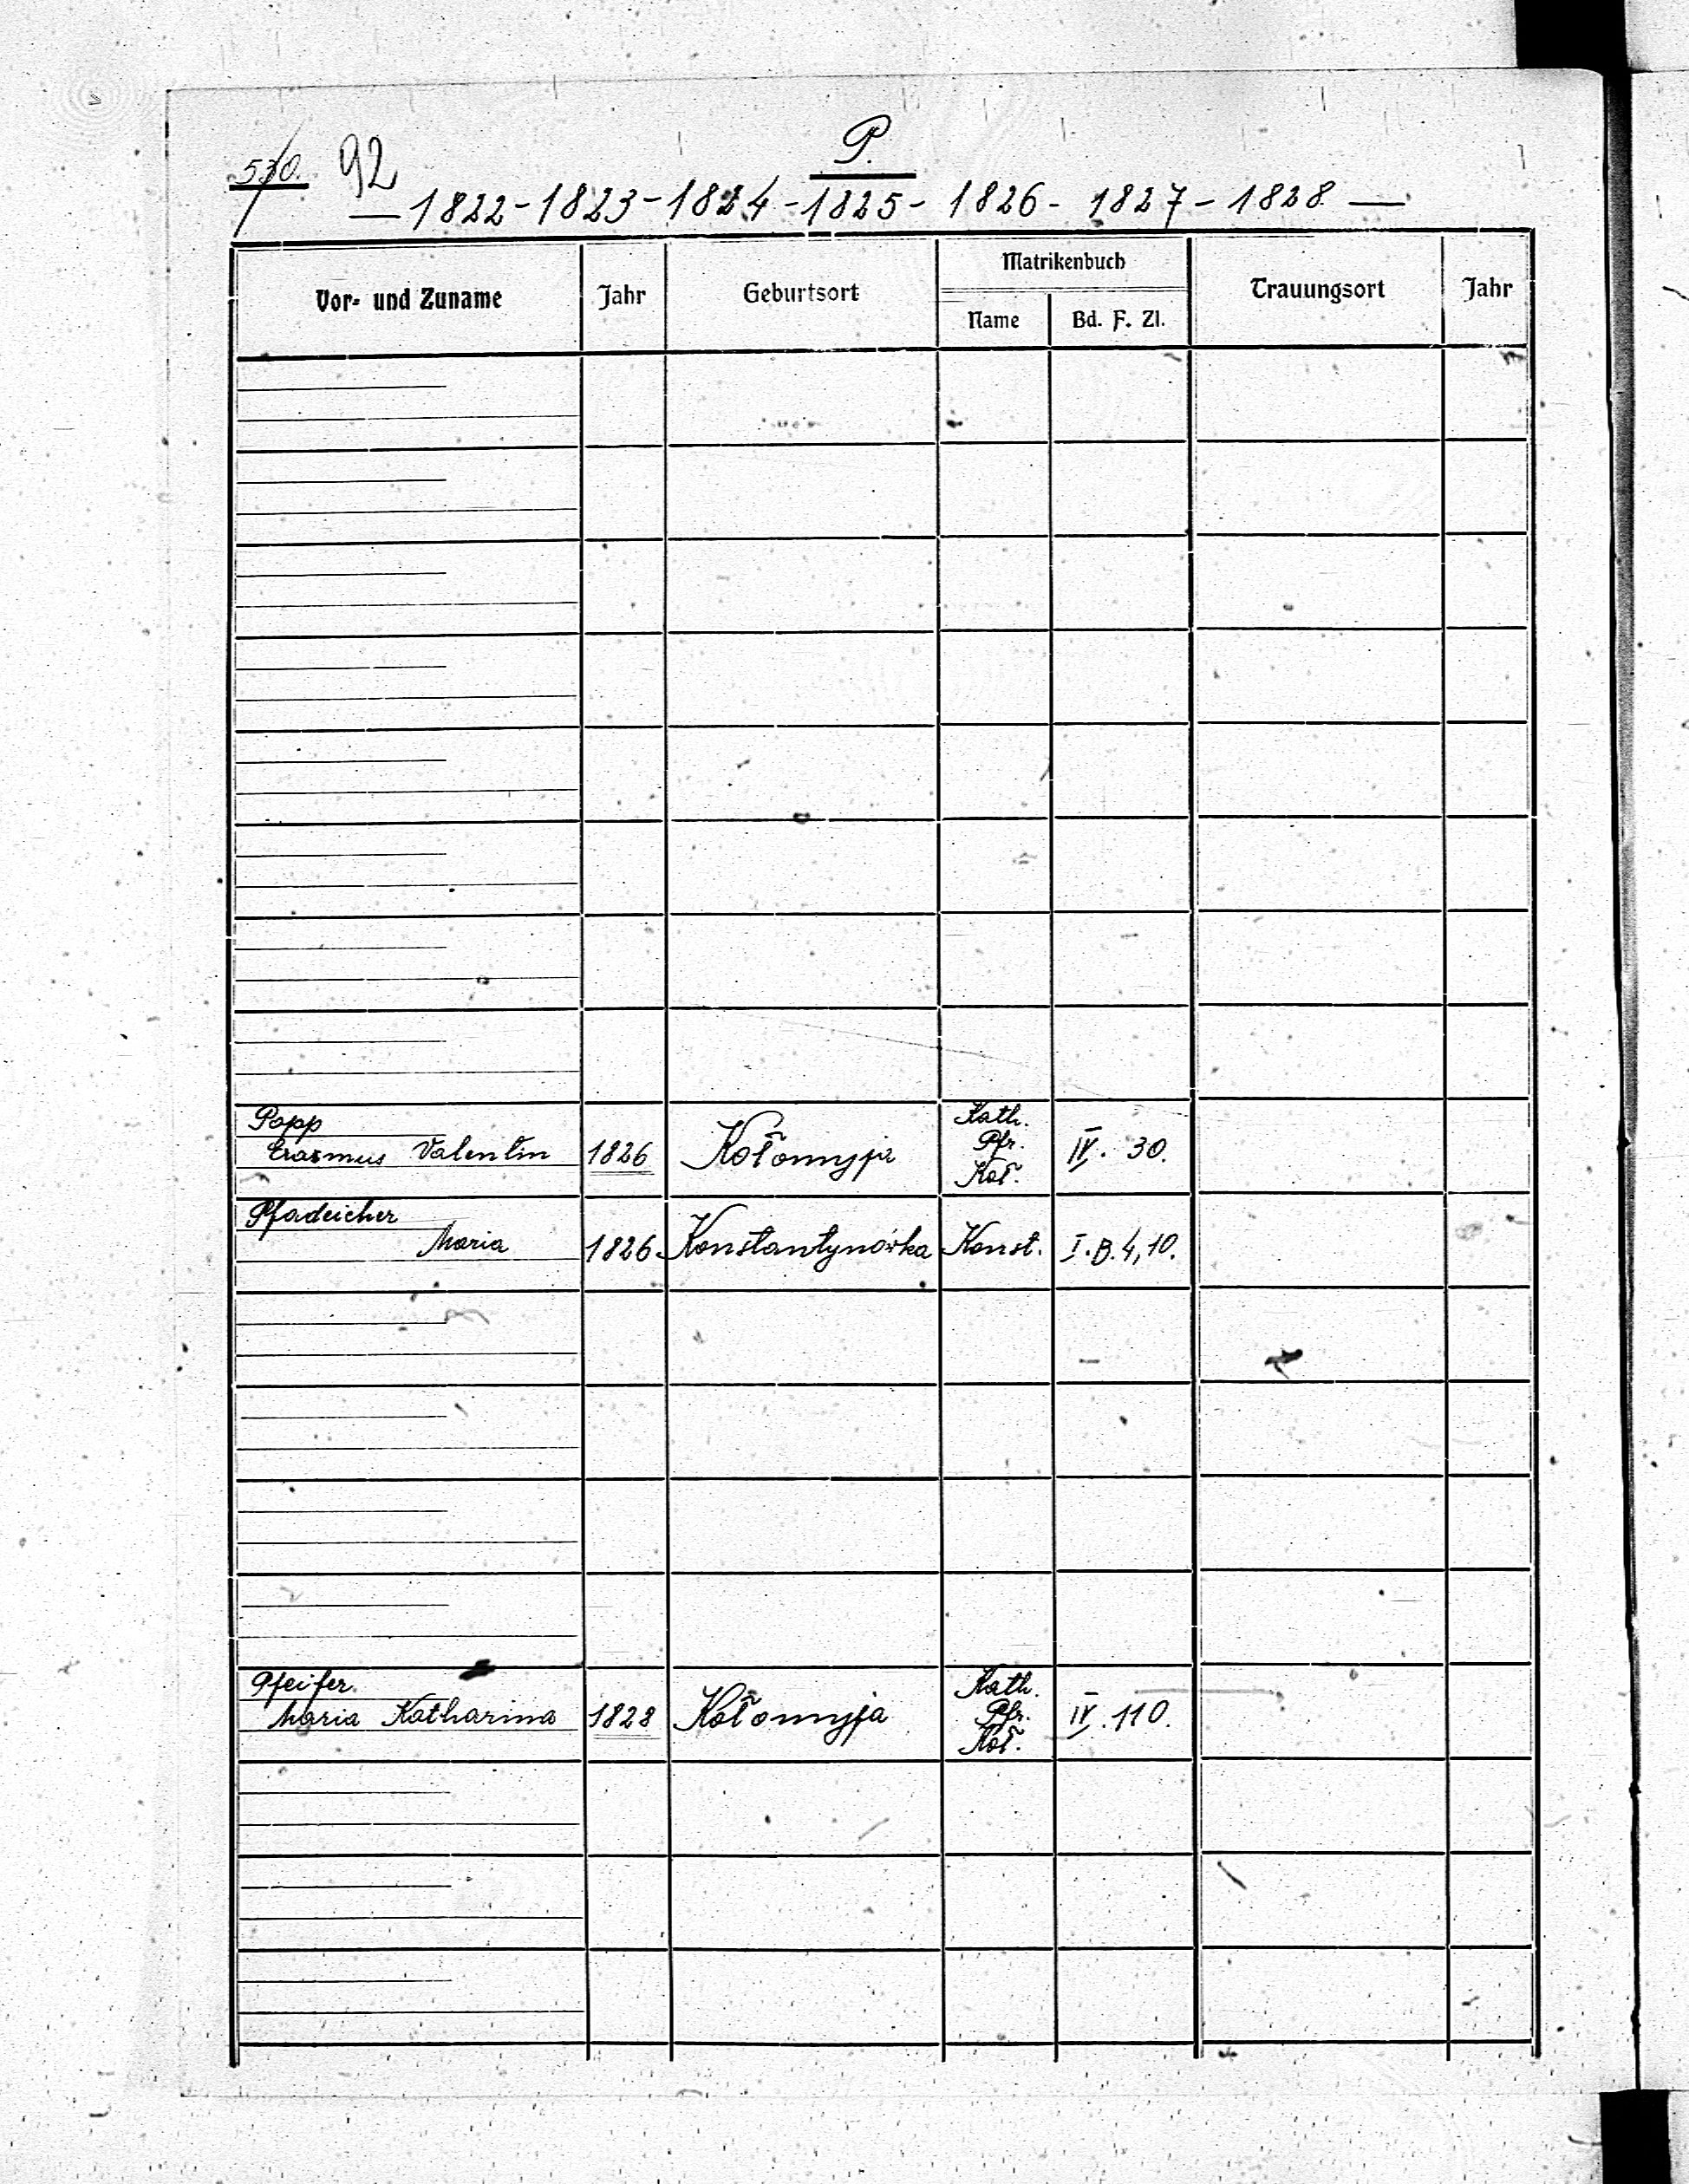 P.
530. 92
— 1822 - 1823 - 1824 - 1825 - 1826 - 1827 - 1828 —
Vor- und Zuname Jahr Geburtsort Matrikenbuch Trauungsort Jahr
Name Bd. F. Zl.
Popp
Erasmus Valentin 1826 Kołomyja Kath. Pfr. Koł. IV. 30.
Pfadeicher
Maria 1826 Konstantynówka Konst. I. B. 4, 10.
Pfeifer
Maria Katharina 1828 Kołomyja Kath. Pfr. Koł. IV. 110.